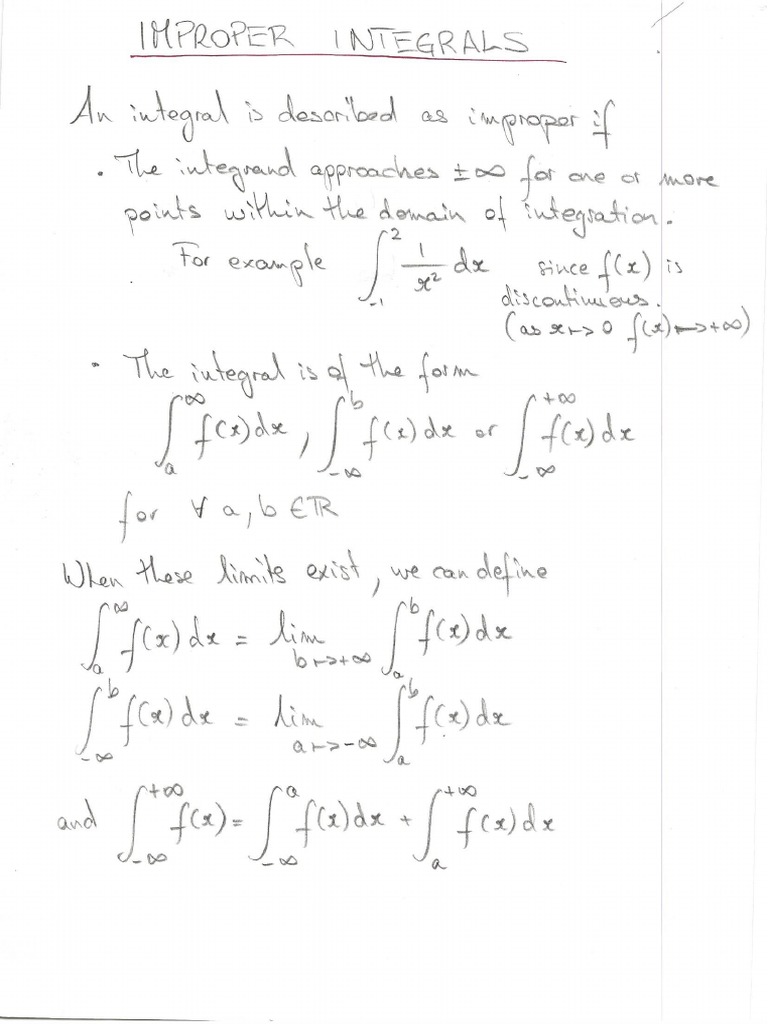 IMPROPER INTEGRALS
An integral is described as improper if
• The integrand approaches ±∞ for one or more
points within the domain of integration.
For example ∫₋₁² 1/x² dx since f(x) is
discontinuous.
(as x↦0 f(x)↦+∞)
• The integral is of the form
∫ₐ^∞ f(x)dx, ∫₋∞^b f(x)dx or ∫₋∞^+∞ f(x)dx
for ∀ a, b ∈ ℝ
When these limits exist, we can define
∫ₐ^∞ f(x)dx = lim b↦+∞ ∫ₐ^b f(x)dx
∫₋∞^b f(x)dx = lim a↦-∞ ∫ₐ^b f(x)dx
and ∫₋∞^+∞ f(x) = ∫₋∞^a f(x)dx + ∫ₐ^+∞ f(x)dx